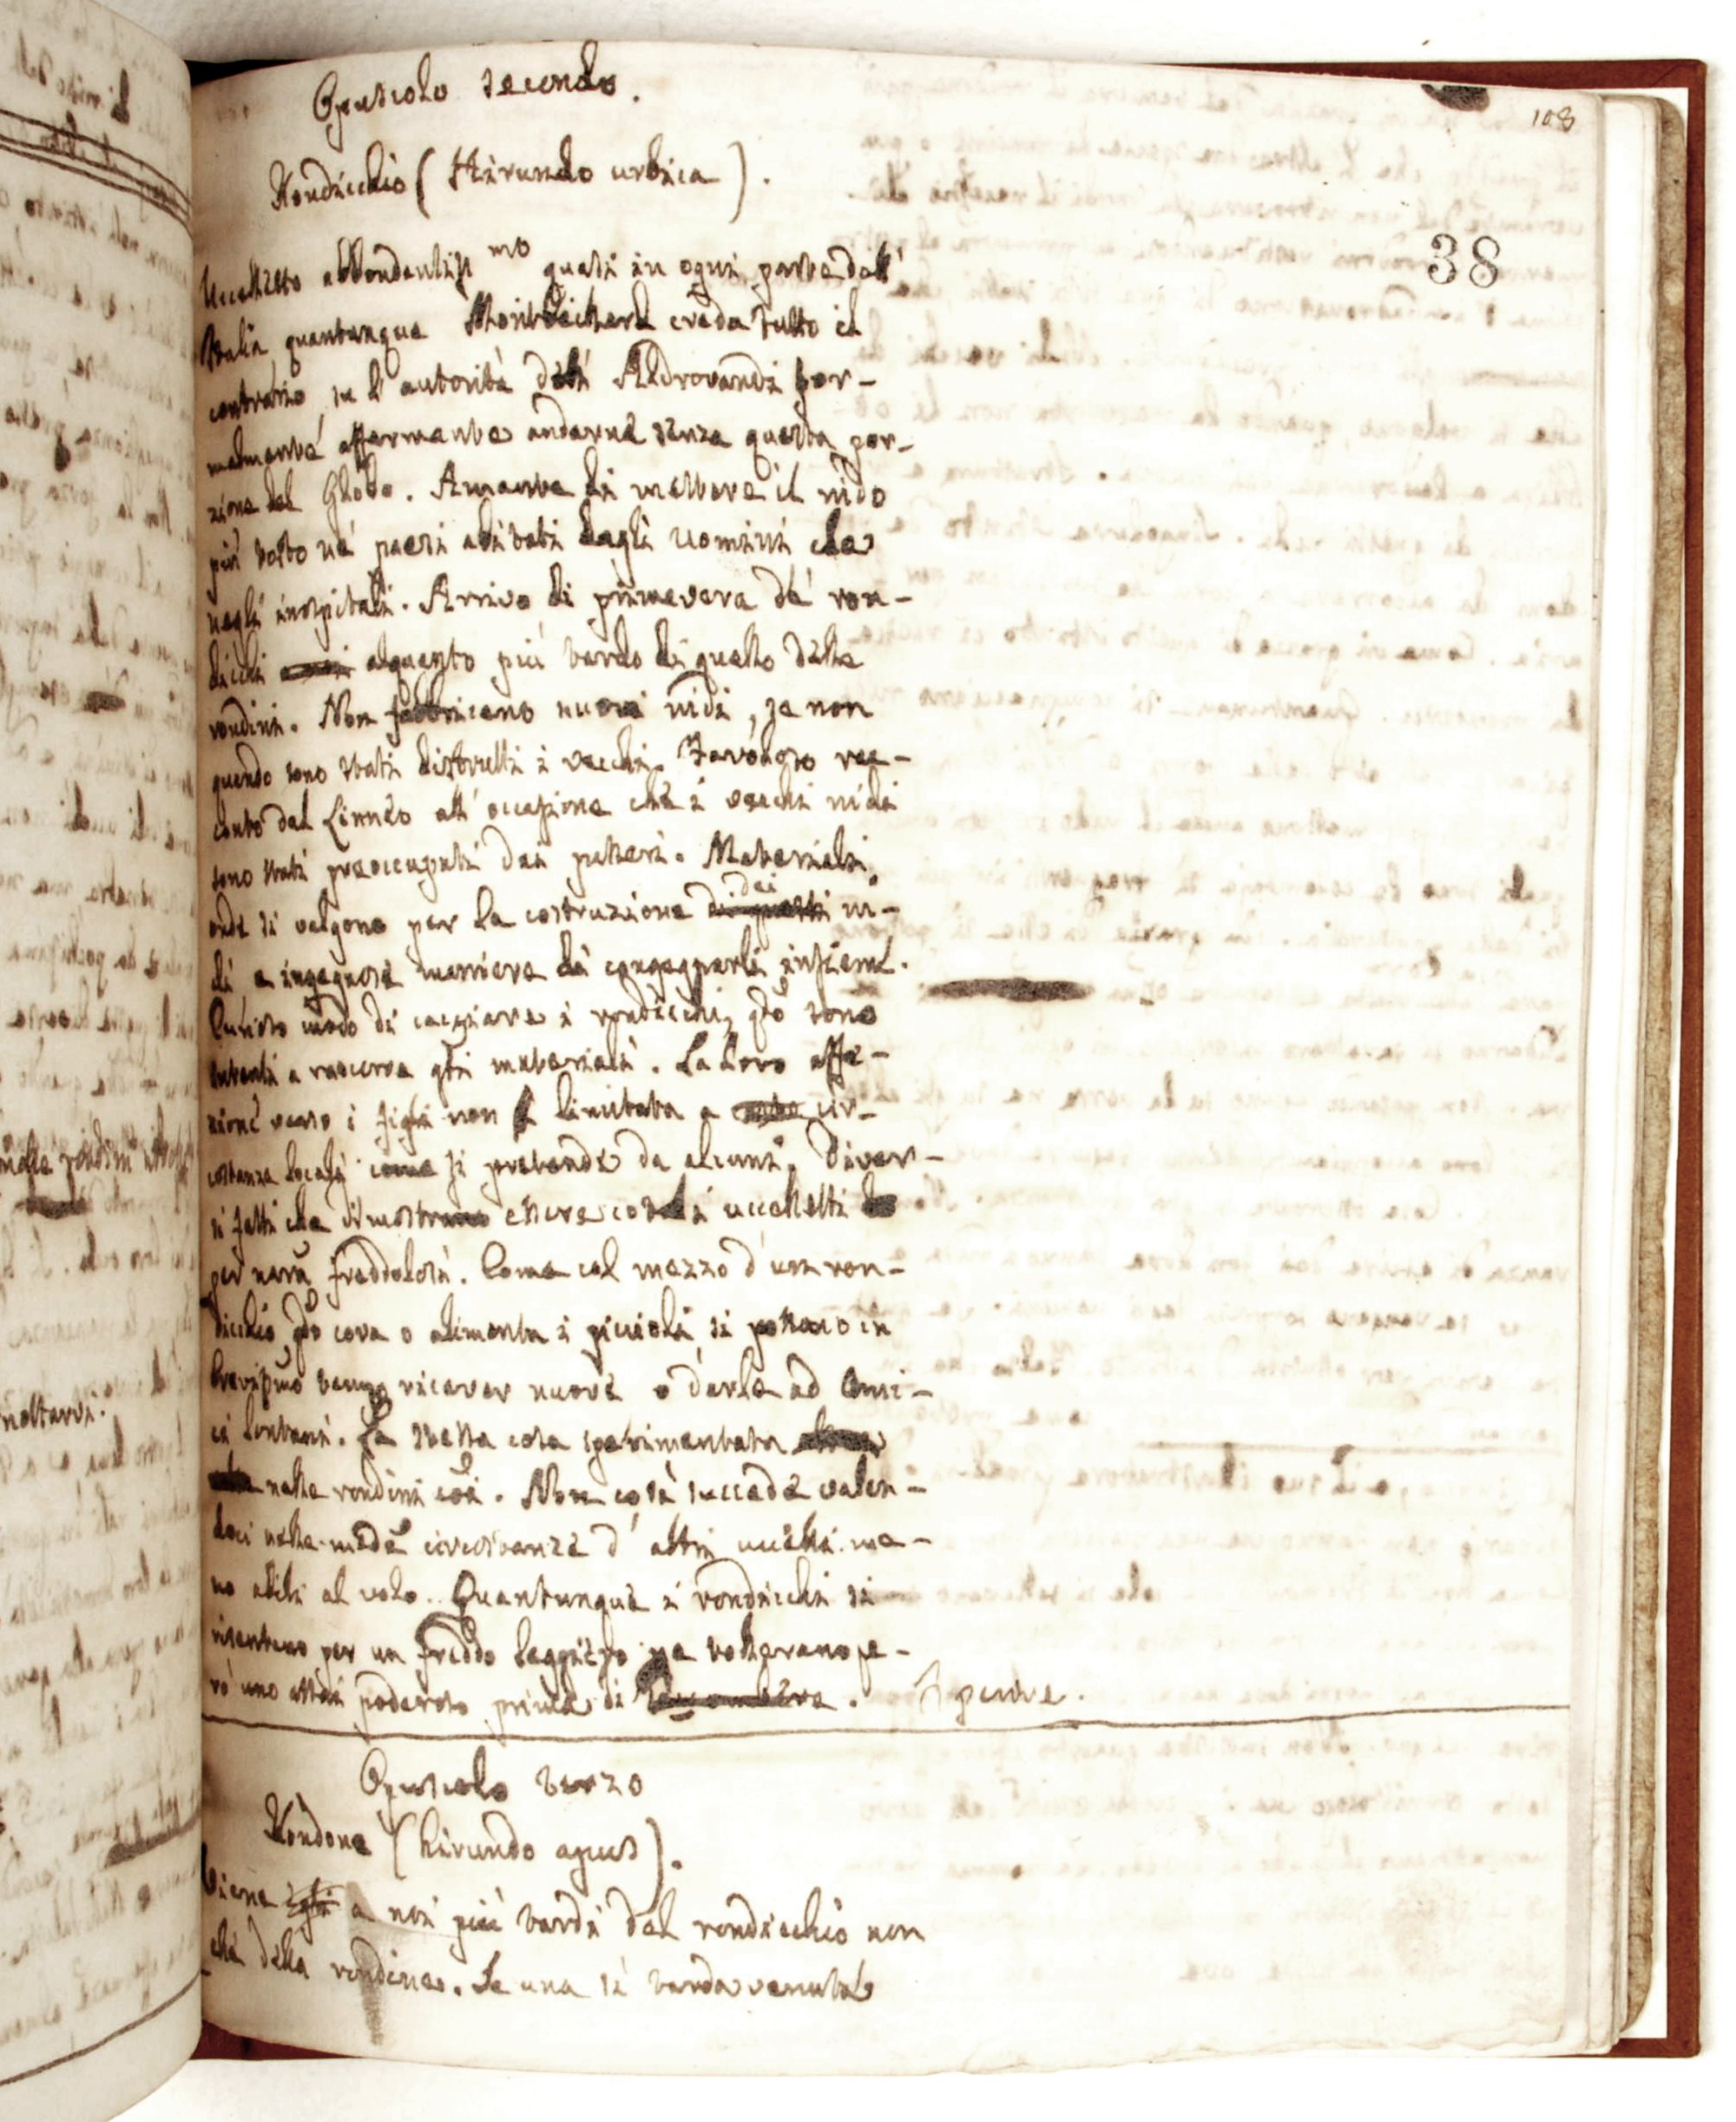 108
38
Opuscolo secondo.
Rondicchio (Hirundo urbica).
Uccelletto abbondantissmo quasi in ogni parte dell'
Italia quantunque Montbeillard creda tutto il
contrario, su l'autorità dell' Aldrovandi for-
malmente affermante andarne senza questa por-
zione del Globo. Amante di mettere il nido
più tosto ne' paesi abitati dagli uomini che
negli inospitali. Arrivo di primavera de' ron-
dicchi alquanto più tardo di quello delle
rondini. Non fabbricano nuovi nidi, se non
quando sono stati distrutti i vecchi. Favoloso rac-
conto del Linnèo all' occasione che i vecchi nidi
sono stati preoccupati dai passeri. Materiali,
onde si valgono per la costruzione di questi dei ni-
di e ingegnosa maniera di congegnarli insieme.
Curioso modo di cacciare i rondicchi, qdo sono
intenti a raccorre qsti materiali. La loro affe-
zione verso i figli non è limitata a cir-
costanze locali come si pretende da alcuni. Diver-
si fatti che dimostrano essere cotesti uccelletti
per natura freddolosi. Come col mezzo d'un ron-
dicchio qdo cova o alimenta i piccioli si possano in
brevissmo tempo ricever nuove o darle ad ami-
ci lontani. La stessa cosa sperimentata
nelle rondini coi. Non così succede valen-
doci nelle medẽ circostanze d' altri uccelli me-
no abili al volo. Quantunque i rondicchi si
risentano per un freddo leggiero ne tollerano pe-
rò uno assai poderoso prima di soccombere. Sperire.
Opuscolo terzo
Rondone (hirundo apus).
Viene Egli a noi più tardi del rondicchio non
che della rondine. Se una sì tarda venuta